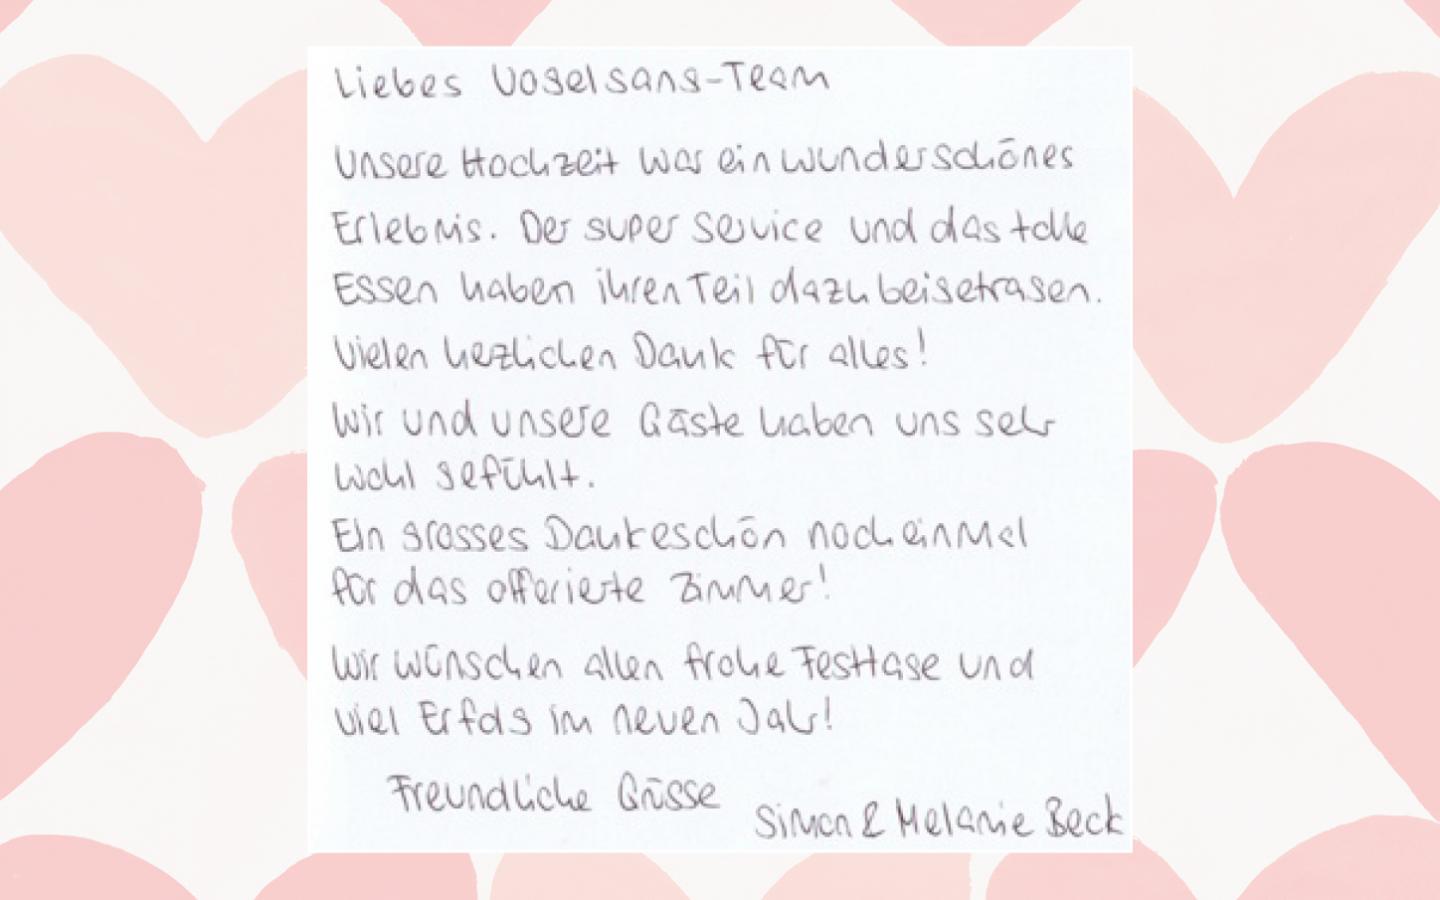 Liebes Vogelsang-Team
Unsere Hochzeit war ein wunderschönes
Erlebnis. Der super Service und das tolle
Essen haben ihren Teil dazu beigetragen.
Vielen herzlichen Dank für alles!
Wir und unsere Gäste haben uns sehr
wohl gefühlt.
Ein grosses Dankeschön noch einmal
für das offerierte Zimmer!
Wir wünschen allen frohe Festtage und
viel Erfolg im neuen Jahr!
Freundliche Grüsse
Simon & Melanie Beck